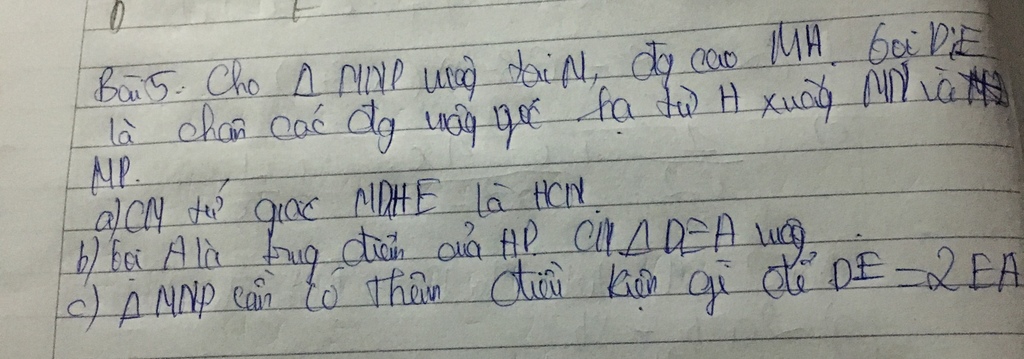 Bài 5. Cho Δ MNP vuôg tại N, đg cao MH. Gọi D; E
là chân các đg vuôg góc hạ từ H xuốg MN và
MP.
a) CM tứ giác MDHE là HCN
b) Gọi A là trug điểm của HP. CM Δ DEA vuôg
c) Δ MNP cần có thêm điều kiện gì để DE = 2EA